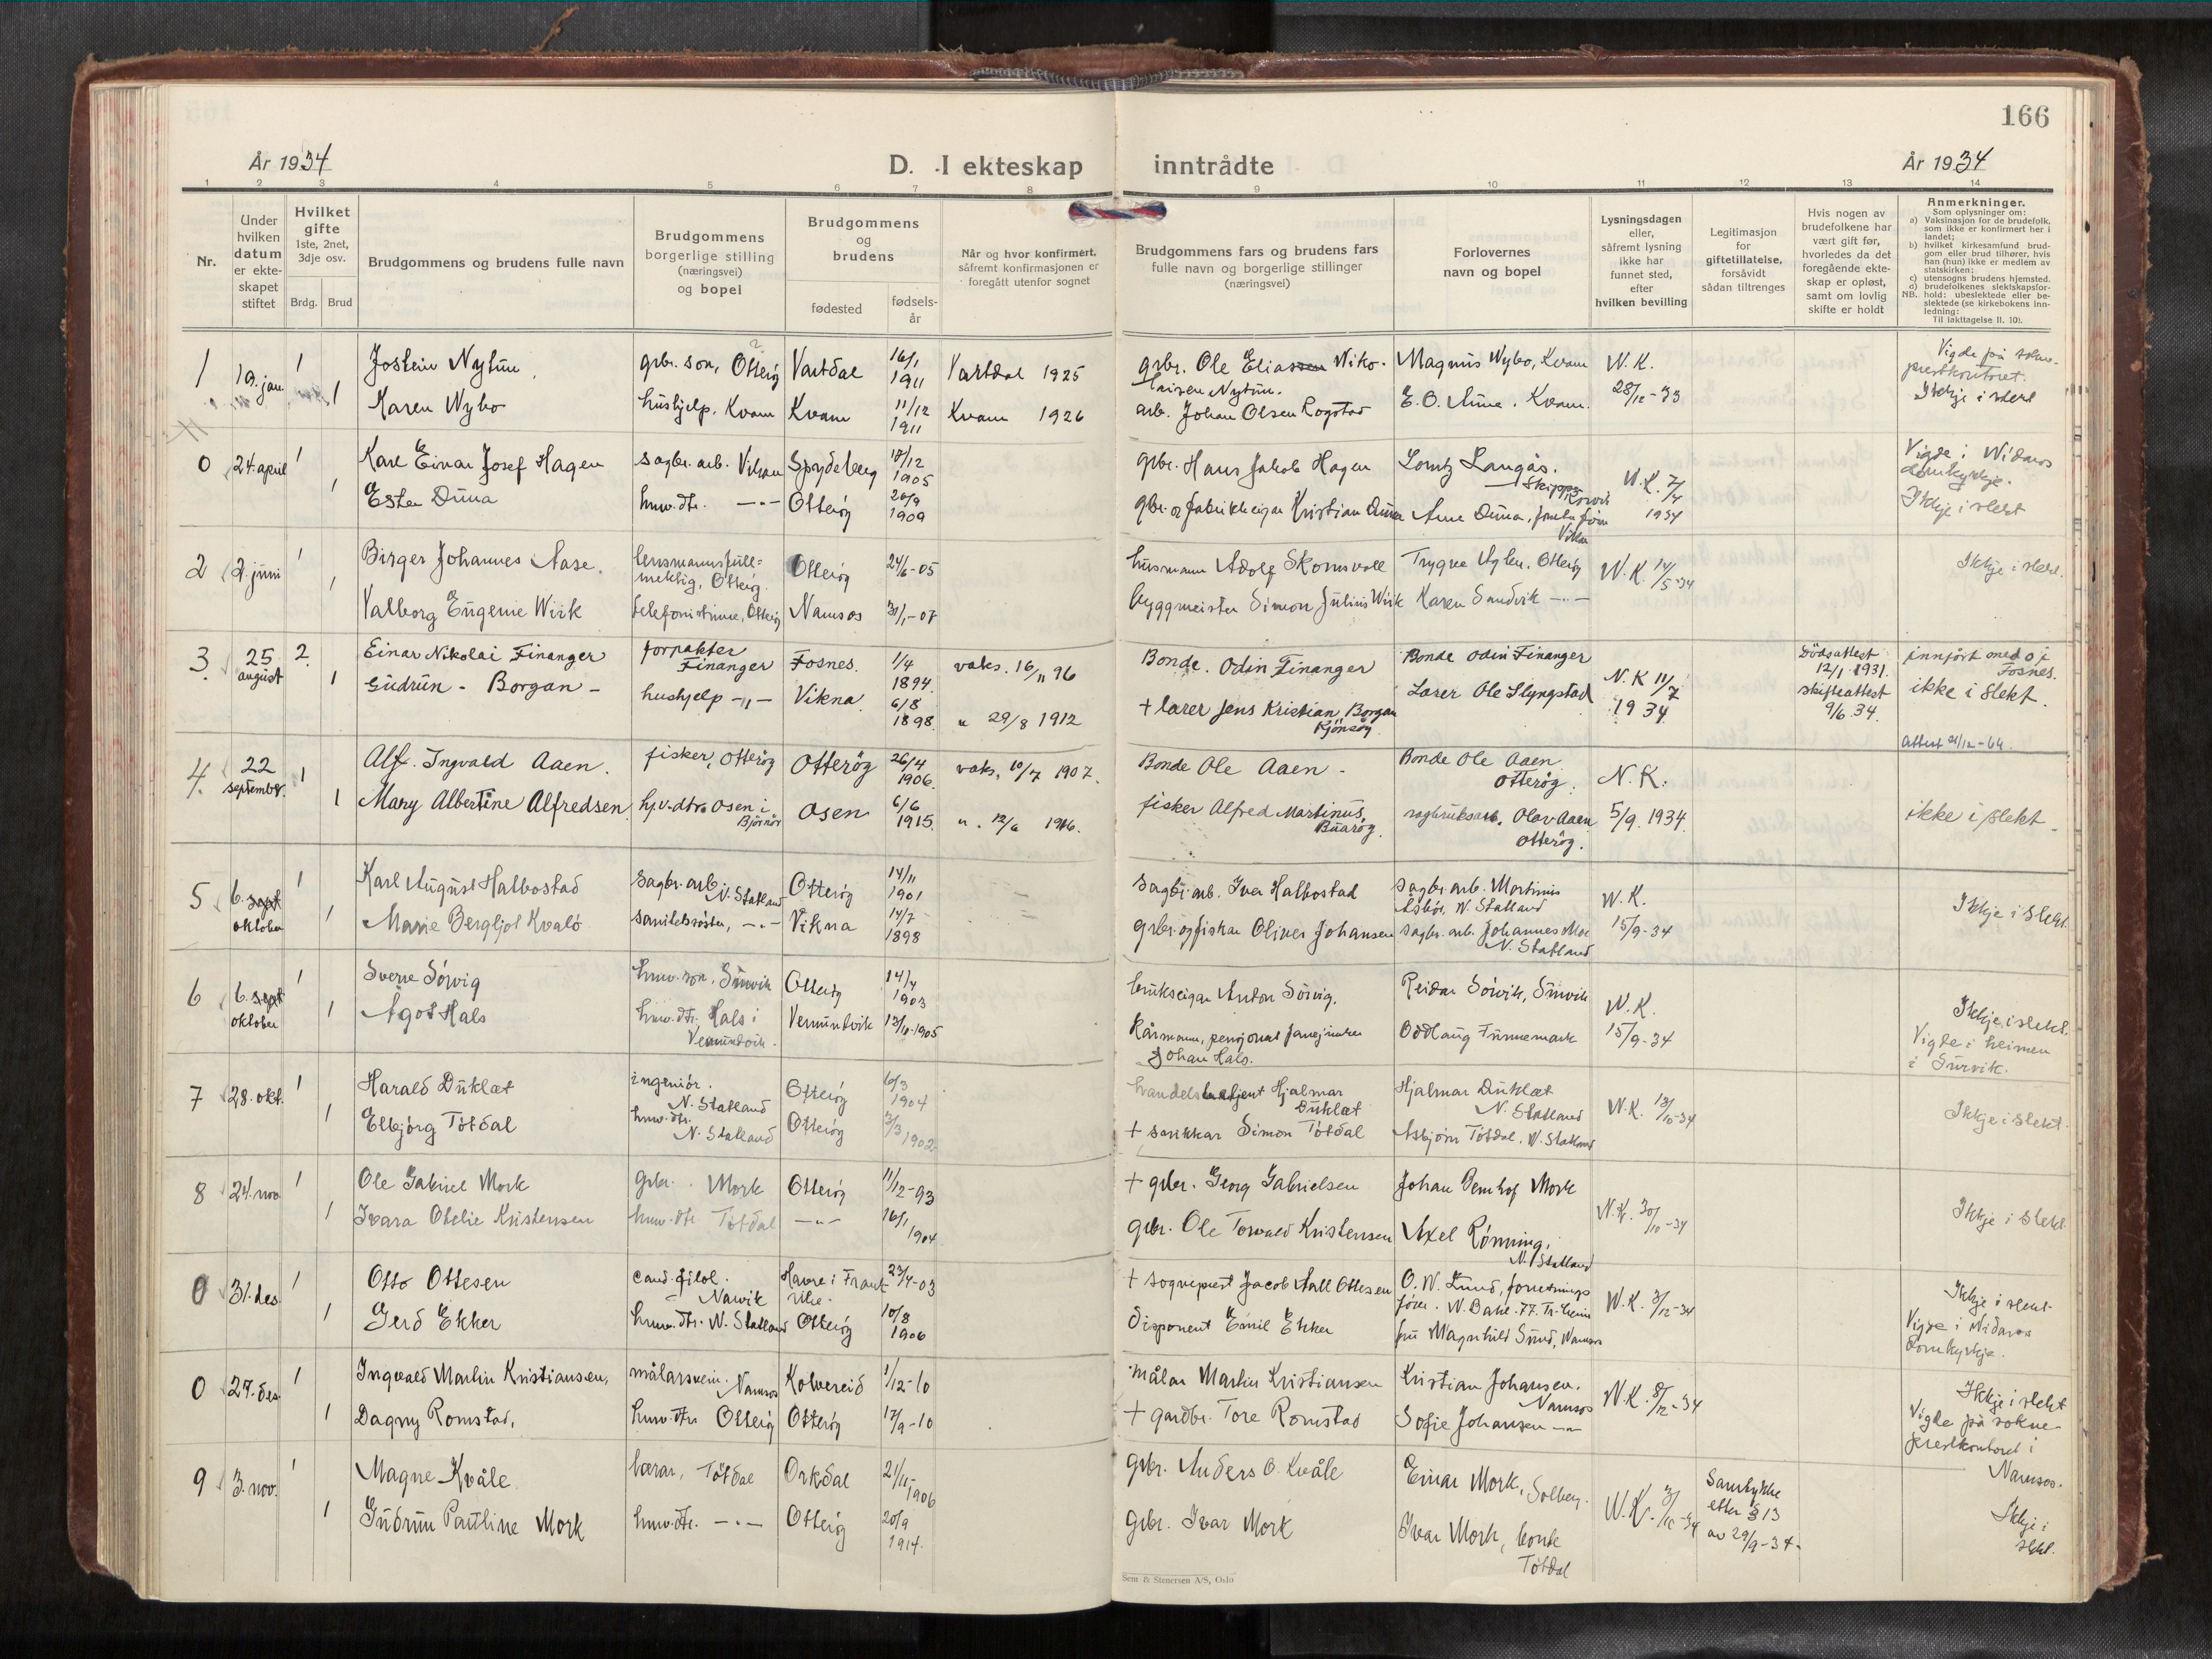 166
År 1934
D. I ekteskap inntrådte
År 1934
1 2 3 4 5 6 7 8 9 10 11 12 13 14
Nr.
Under hvilken datum er ekteskapet stiftet
Hvilket gifte 1ste, 2net, 3dje osv.
Brdg. Brud
Brudgommens og brudens fulle navn
Brudgommens borgerlige stilling (næringsvei) og bopel
Brudgommens og brudens
fødested
fødselsår
Når og hvor konfirmert, såfremt konfirmasjonen er foregått utenfor sognet
Brudgommens fars og brudens fars fulle navn og borgerlige stillinger (næringsvei)
Forlovernes navn og bopel
Lysningsdagen eller, såfremt lysning ikke har funnet sted, efter hvilken bevilling
Legitimasjon for giftetillatelse, forsåvidt sådan tiltrenges
Hvis nogen av brudefolkene har vært gift før, hvorledes da det foregående ekteskap er opløst, samt om lovlig skifte er holdt
Anmerkninger.
Som oplysninger om:
a) Vaksinasjon for de brudefolk, som ikke er konfirmert her i landet;
b) hvilket kirkesamfund brudgom eller brud tilhører, hvis han (hun) ikke er medlem av statskirken;
c) utensogns brudens hjemsted.
d) brudefolkenes slektskapsforhold: ubeslektede eller beslektede (se kirkebokens innledning:
NB.
Til iakttagelse II. 10).
1 19. jan 1 Jostein Nytun grbr. son, Otterøy Vartdal 16/1 1911 Vartdal 1925 grbr. Ole Eliassen Nikolaisen Nytun. Magnus Nybo, Kvam N. K. 28/12-33 Vigde på sokneprestkontoret.
1 Karen Nybo hushjelp. Kvam Kvam 11/12 1911 Kvam 1926 arb. Johan Olsen Rogstad Kvam. Ikkje i slekt
0 24. april 1 Karl Einar Josef Hagen sagbr. arb. Spydeberg 18/12 1905 grbr. Hans Jakob Hagen Langås. N. K. 7/4 1934 Vigde i Nidaros domkyrkje.
1 Ester Duna huv. dtr. -"- Otterøy 20/9 1909 grbr. og fabrikkeigar Kristian Duna Arne Duna, Ikkje i slekt
2 2. juni 1 Birger Johannes Aase. lensmannsfullmektig, Otterøy. Otterøy 24/6-05 husmann Adolf Skomsvoll Trygve Aglen, Otterøy N. K. 14/5-34 Ikkje i slekt.
1 Valborg Eugenie Wiik telefonistinne, Otterøy Namsos 31/1-07 byggmeister Simon Julius Wiik Karen Sandvik -"-
3. 25 august 2. Einar Nikolai Finanger forpakter Finanger Fosnes. 1/4 1894. vaks. 16/11 96 Bonde. Odin Finanger Bonde Odin Finanger N. K 11/7 1934 Dødsattest 12/1 1931. skifteattest 9/6 34. innført med oj Fosnes.
1 Gudrun - Borgan - hushjelp -"- Vikna 6/8 1898. " 29/8 1912 + lærer Jens Kristian Borgan Lærer Ole Slyngstad ikke i slekt.
4. 22 september. 1 Alf. Ingvald Aaen. fisker, Otterøy Otterøy 26/4 1906. vaks. 10/7 1907. Bonde Ole Aaen - Bonde Ole Aaen Otterøy. N. K. 5/9. 1934. Attest 21/12-64.
1 Mary Albertine Alfredsen hjv. dtr. Osen i Bjørnør Osen 6/6 1915. ". 12/6 1916. fisker Alfred Martinus Buarøy. sagbruksarb. Olav Aaen Otterøy. ikke i slekt
5 6. sept oktober 1 Karl August Halbostad sagbr. arb. N. Statland Otterøy 14/11 1901 sagbr. arb. Iver Halbostad sagbr. arb. Martinus N. Statland N. K. 15/9-34 Ikkje i slekt.
1 Marie Bergljot Kvalø sanitetssøster, -"- Vikna 14/7 1898 grbr. og fiskar Oliver Johansen sagbr. arb. Johannes Moe N. Statland
6 6. sept oktober 1 Sverre Sörvig huv. son, Survik Otterøy 14/4 1903 brukseigar Anton Sörvig. Reidar Sörvik, Survik N. K. 15/9-34 Ikkje i slekt.
1 Ågot Hals huv. dtr. Hals i Vemundvik. Vemundvik 13/10-1905 Kårmann, Johan Hals. Oddlaug Finnemark Vigde i heimen i Survik.
7 28. okt. 1 Harald Duklæt ingeniør. N. Statland Otterøy 6/3 1904 handelsbetjent Hjalmar Duklæt Hjalmar Duklæt N. Statland N. K. 13/10-34 Ikkje i slekt.
1 Elbjørg Tötdal huv. dtr. N. Statland Otterøy 3/3 1902 + snikkar Simon Tötdal Asbjørn Tötdal, N. Statland
8 24. nov 1 Ole Gabriel Mork grbr. Mork Otterøy 11/12-93 + grbr. Georg Gabrielsen Johan Mork N. K. 30/10-34 Ikkje i slekt
1 Ivara Otelie Kristensen huv. dtr Tötdal -"- 16/1 1904 grbr. Ole Torvald Kristensen Axel Rönning, N. Statland
0 31. des 1 Otto Ottesen cand. filol. Narvik Havre i Frankrike. 23/4-03 + sogneprest Jacob Aall Ottesen O. W. Lund, forretningsfører. N. K. 3/12-34 Ikkje i slekt.
1 Gerd Ekker huv. dtr. N. Statland Otterøy 10/8 1906 Disponent Emil Ekker fru Magnhild Namsos Vigde i Nidaros domkyrkje.
0 27. des 1 Ingvald Martin Kristiansen, målarsvein. Namsos Kolvereid 1/12-10 målar Martin Kristiansen Kristian Johansen. Namsos N. K. 8/12-34 Ikkje i slekt
1 Dagny Romstad, huv. dtr Otterøy Otterøy 17/9-10 + gardbr. Tore Romstad Sofie Johansen -"- Vigde på sokneprestkontoret i Namsos.
9 3. nov. 1 Magne Kvåle lærar, Tötdal Orkdal 21/11-1906 grbr. Anders O. Kvåle Einar Mork, Solberg. N. K. 3/10-34 Samtykke etter § 13 av 29/9-34. Ikkje i slekt.
1 Gudrun Pauline Mork huv. dtr. -"- Otterøy 20/9 1914. grbr. Ivar Mork Ivar Mork, bonde Tötdal
Sem & Stenersen A/S, Oslo